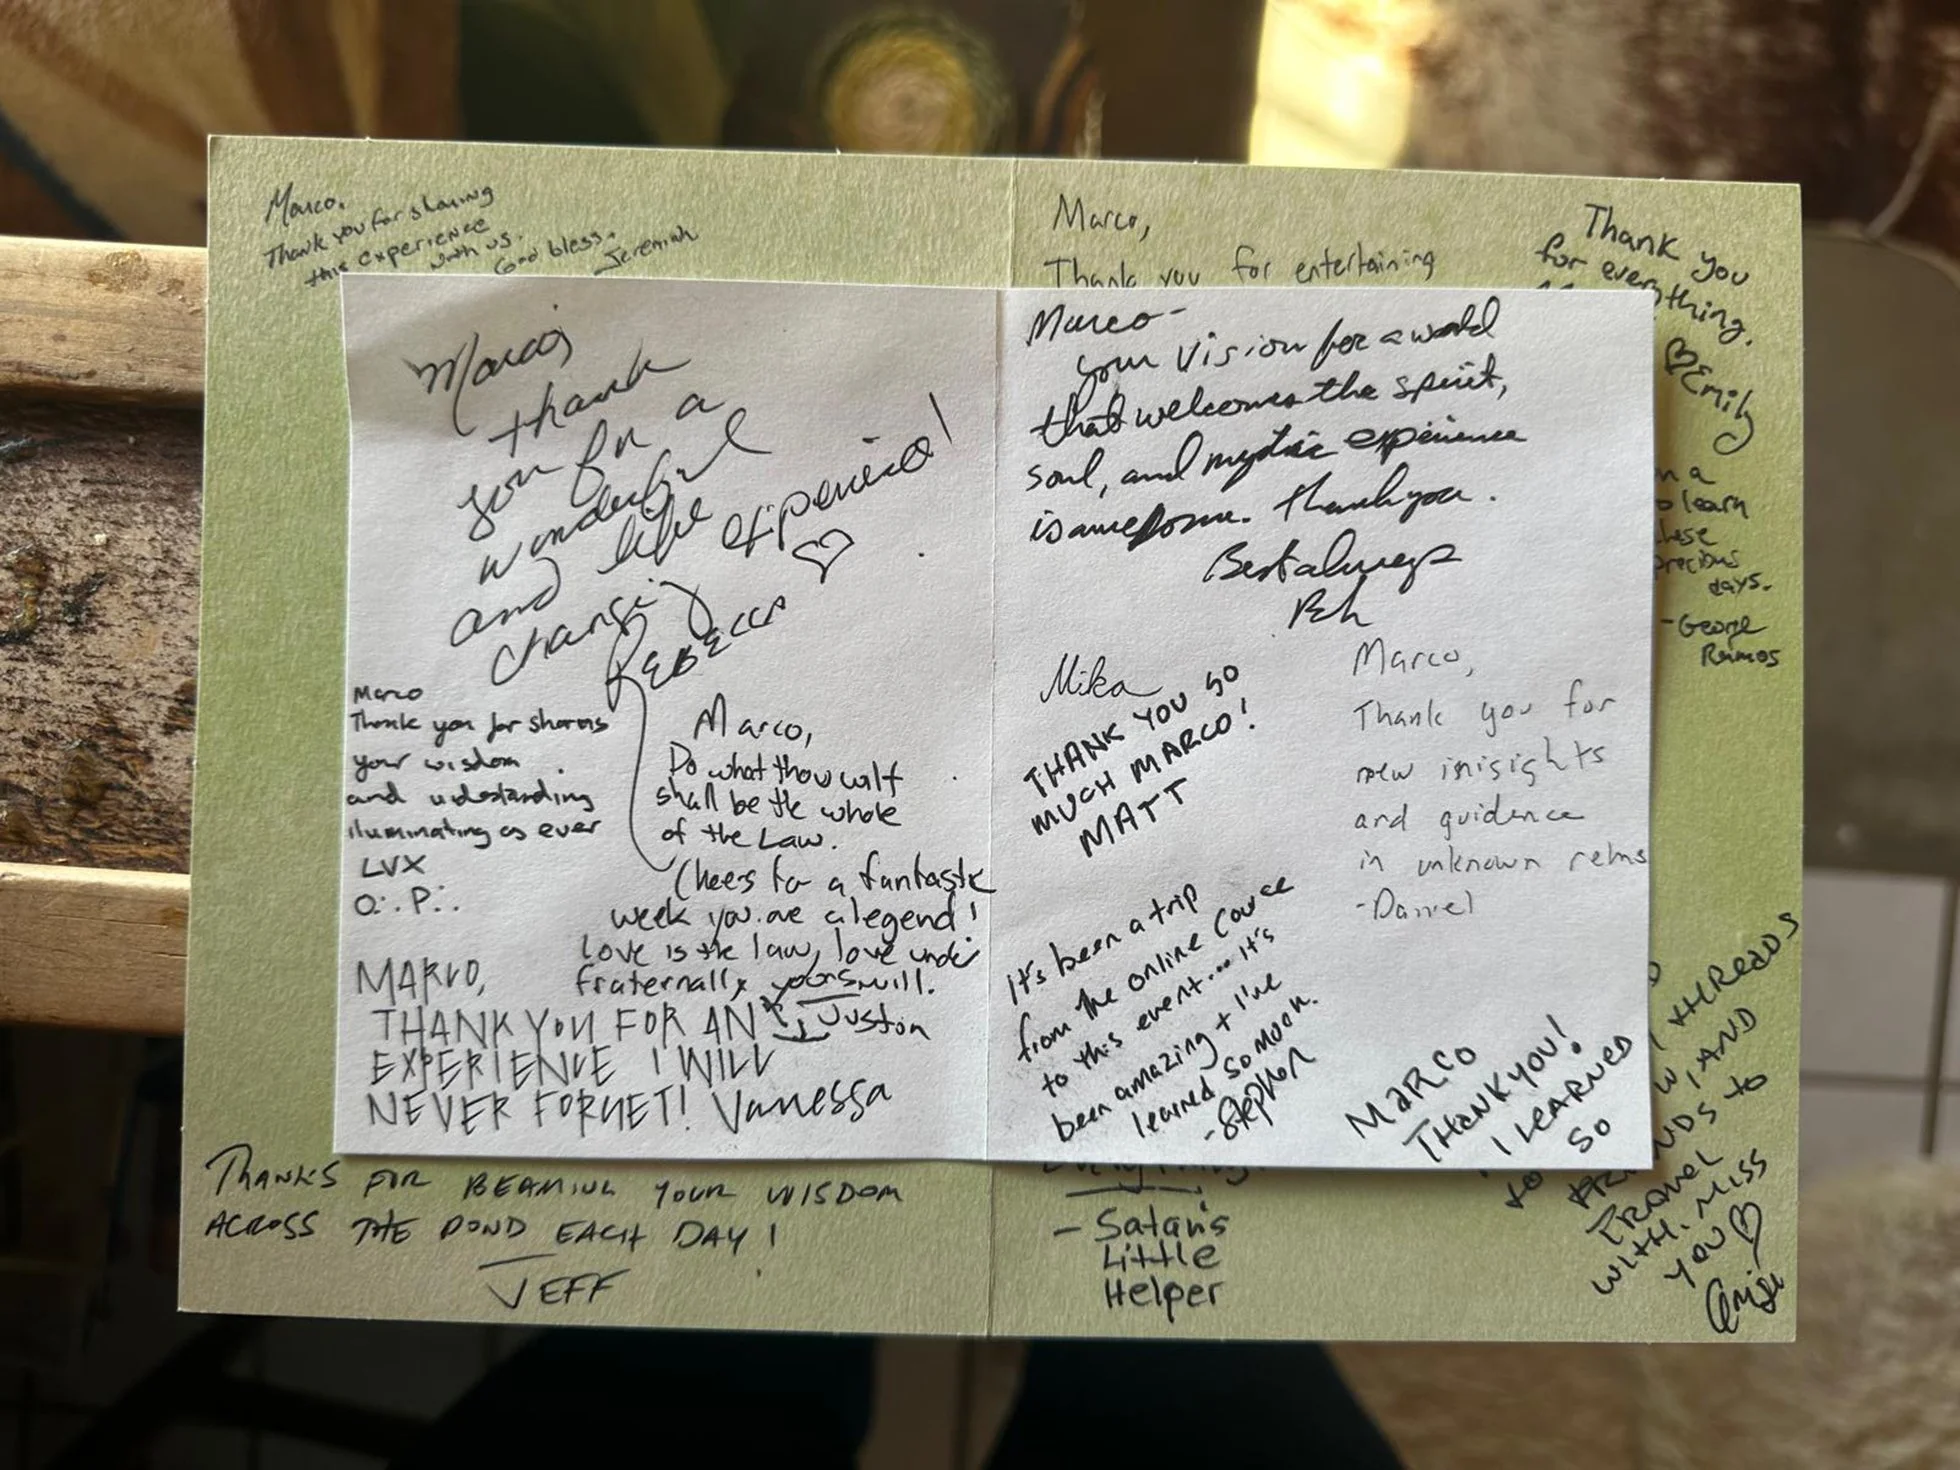 Marco,
Thank you for sharing
this experience
with us.
God bless.
Jeremiah
Marco,
Thank you for entertaining
Thank you
for everything.
♡ Emily
Marco,
thank
you for a
wonderful
and life
changing experience!
♡
REBECCA
Marco
Thank you for sharing
your wisdom
and understanding
iluminating as ever
LVX
O∴P∴
Marco,
Do what thou wilt
shall be the whole
of the Law.
Cheers for a fantastic
week you are a legend!
Love is the law, love under
will.
fraternally yours
Juston
MARCO,
THANK YOU FOR AN
EXPERIENCE I WILL
NEVER FORGET! Vanessa
THANKS FOR BEAMING YOUR WISDOM
ACROSS THE POND EACH DAY!
JEFF
Marco-
your vision for a world
that welcomes the spirit,
soul, and mystic experience
is awesome. Thank you.
Best always
Mika
THANK YOU SO
MUCH MARCO!
MATT
Marco,
Thank you for
new inisights
and guidence
in unknown relms
-Daniel
it's been a trip
from the online cource
to this event... it's
been amazing + I've
learned so much.
-Stephen
MARCO
THANK YOU!
I LEARNED
SO
to learn
precious
days.
-George
Ramos
- Satan's
Little
Helper
THREADS
AND
to
TRAVEL
WITH. MISS
YOU ♡